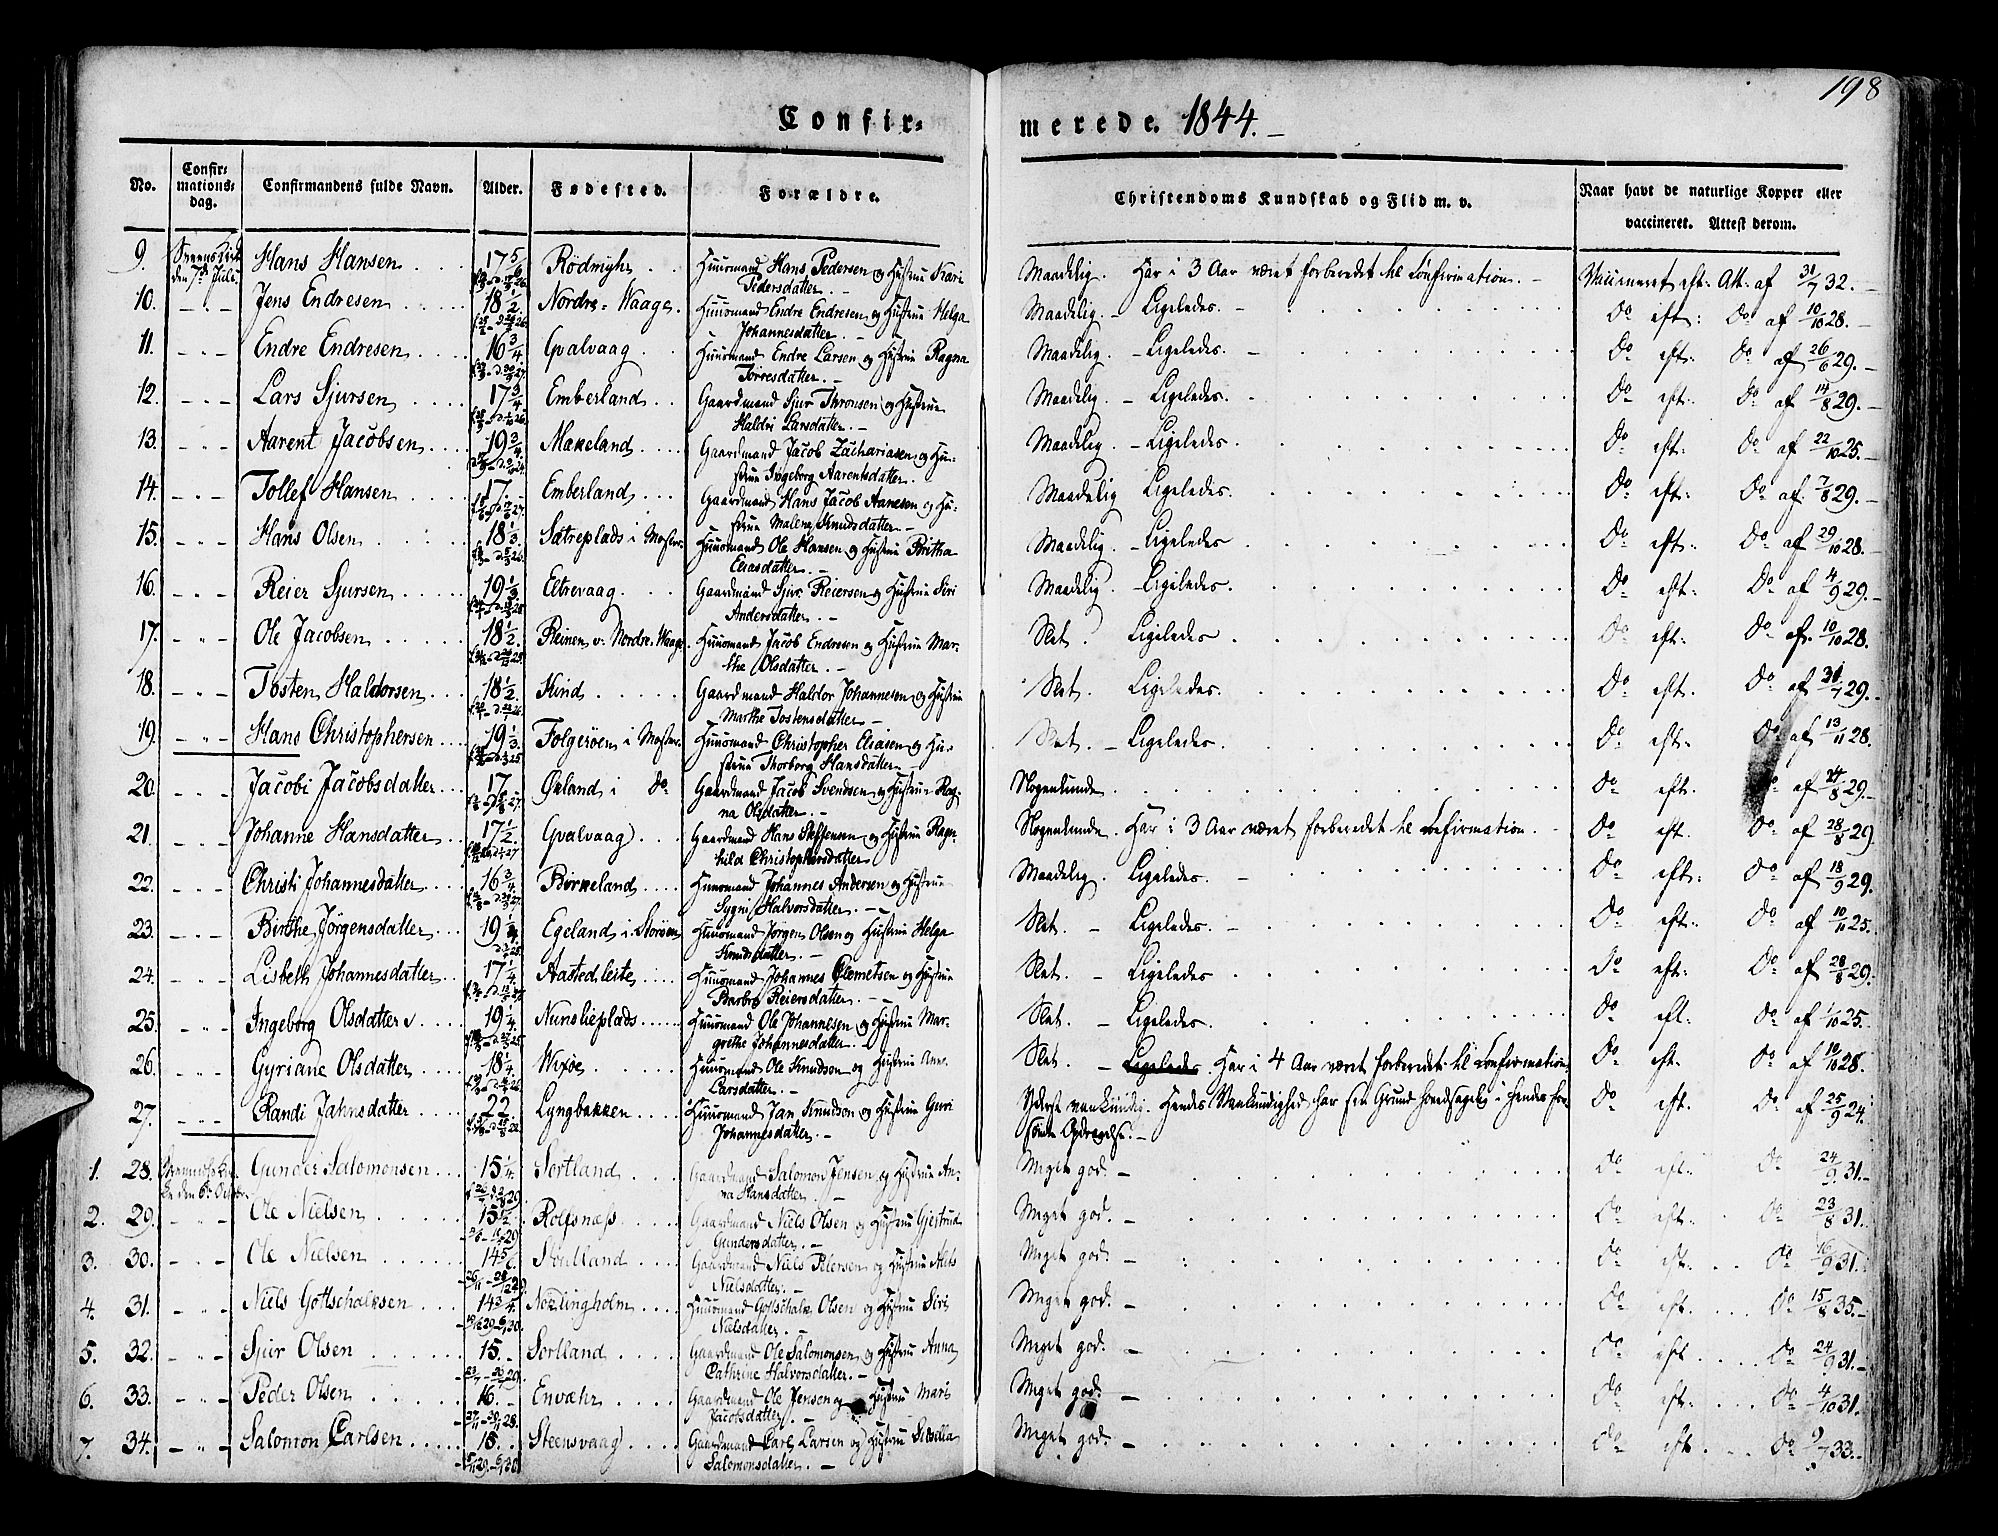 198
Confirmerede. 1844.
No. Confirmationsdag. Confirmandens fulde Navn. Alder. Fødested. Forældre. Christendoms Kundskab og Flid m. v. Naar havt de naturlige Kopper eller vaccineret. Attest derom.
9. den 7de Juli. Hans Hansen 17 5/6 Huusmand Hans Pedersen og Hustrue Kari Pedersdatter. Maadelig. Har i 3 Aar været forberedet til Confirmation. Vaccineret eft: Att: af 31/7 32.
10. Jens Endresen 18 1/2 Nordre-Waage Huusmand Endre Endresen og Hustrue Helga Johannesdatter. Maadelig. Ligeledes. Do eft: Do af 10/10 28.
11. Endre Endresen 16 3/4 Gvalvaag Huusmand Endre Larsen og Hustrue Ragna Torresdatter. Maadelig. Ligeledes. Do eft: Do af 26/6 29.
12. Lars Sjursen 17 3/4 Emberland Gaardmand Sjur Thronsen og Hustrue Haldri Larsdatter. Maadelig. Ligeledes. Do eft: Do af 14/8 29.
13. Aarent Jacobsen 19 3/4 Mækeland Gaardmand Jacob Zachariasen og Hustrue Ingeborg Aarentsdatter. Maadelig. Ligeledes. Do eft: Do af 22/10 25.
14. Tollef Hansen 17. Emberland Gaardmand Hans Jacob Aanesen og Hustrue Malene Knudsdatter. Maadelig Ligeledes. Do eft: Do af 7/8 29.
15. Hans Olsen 18 1/3 Sætreplads i Moster. Huusmand Ole Hansen og Hustrue Britha Eliasdatter. Maadelig. Ligeledes Do eft: Do af 29/10 28.
16. Reier Sjursen 19 1/3 Eltrevaag Gaardmand Sjur Reiersen og Hustrue Siri Andersdatter. Maadelig. Ligeledes Do eft: Do af 4/9 29.
17. Ole Jacobsen 18 1/2 Reinen v: Nordre-Waage. Huusmand Jacob Endresen og Hustrue Marthe Olsdatter. Slet. Ligeledes Do eft: Do af 10/10 28.
18. Tosten Haldorsen 18 1/2 Hind Gaardmand Haldor Johannesen og Hustrue Marthe Tostensdatter. Slet. Ligeledes. Do eft. Do af 31/7 29.
19. Hans Christophersen 19 1/3 Folgerøen i Moster. Huusmand Christopher Eliasen og Hustrue Thorborg Hansdatter. Slet. Ligeledes. Do eft: Do af 13/11 28.
20. Jacobi Jacobsdatter 17 Økland i Do Gaardmand Jacob Svendsen og Hustrue Ragna Olsdatter. Nogenlunde Do eft. Do af 24/8 29.
21. Johanne Hansdatter 17 1/2 Gvalvaag Gaardmand Hans Steffensen og Hustrue Ragnhild Christophersdatter. Nogenlunde. Har i 3 Aar været forberedet til Confirmation. Do eft: Do af 28/8 29.
22. Christi Johannesdatter 16 3/4 Børkeland Huusmand Johannes Andersen og Hustrue Sygni Halvorsdatter. Maadelig. Ligeledes. Do eft: Do af 18/9 29.
23. Birthe Jørgensdatter 19 1/4 Egeland i Storøen Huusmand Jørgen Olsen og Hustrue Helga Knudsdatter. Slet. Ligeledes. Do eft. Do af 10/11 25.
24. Lisbeth Johannesdatter 17 1/4 Aastedleite Huusmand Johannes Clemetsen og Hustrue Barbro Reiersdatter. Slet. Ligeledes Do eft: Do af 28/8 29.
25. Ingeborg Olsdatter 19 1/4 Nunslieplads Huusmand Ole Johannesen og Hustrue Margrethe Johannesdatter. Slet. Ligeledes. Do eft: Do af 1/10 25.
26. Gyriane Olsdatter 18 1/4 Wixøe Huusmand Ole Knudsen og Hustrue Anne Larsdatter. Slet. Ligeledes. Har i 4 Aar været forberedet til Confirmation. Do eft. Do af 10/10 28.
27. Randi Jahnsdatter 22 Lyngbakken Huusmand Jan Knudson og Hustrue Guri Johannesdatter. Yderst vankundig. Hendes Vankundighed har sin Grund hovedsagelig i hendes forsømte Opdragelse. Do eft. Do af 25/9 24.
1. 28. den 6te Octbr. Gunder Salomonsen 15 1/4 Sortland Gaardmand Salomon Jensen og Hustrue Anna Hansdatter. Meget god. Do eft: Do 24/9 31.
2. 29. Ole Nielsen 15 1/2 Rolfsnæss Gaardmand Niels Olsen og Hustrue Gjertrud Gundersdatter. Meget god. Do eft: Do 23/8 31.
3. 30. Ole Nielsen 14 5/6 Gaardmand Niels Petersen og Hustrue Nielsdatter. Meget god. Do eft: Do 16/9 31.
4. 31. Niels Gottschalksen 14 3/4 Nordingholm Huusmand Gottschalk Olsen og Hustrue Siri Nielsdatter. Meget god. Do eft. Do 15/8 35.
5. 32. Sjur Olsen 15. Sortland Gaardmand Ole Salomonsen og Hustrue Anna Cathrine Halvorsdatter. Meget god. Do eft. Do 24/9 31.
6. 33. Peder Olsen 16. Enværk Gaardmand Ole Jensen og Hustrue Mari Jacobsdatter. Meget god. Do eft. Do 4/10 31.
7. 34. Salomon Carlsen 15. Steensvaag Gaardmand Carl Larsen og Hustrue Sissella Salomonsdatter. Meget god. Do eft. Do 9/7 33.